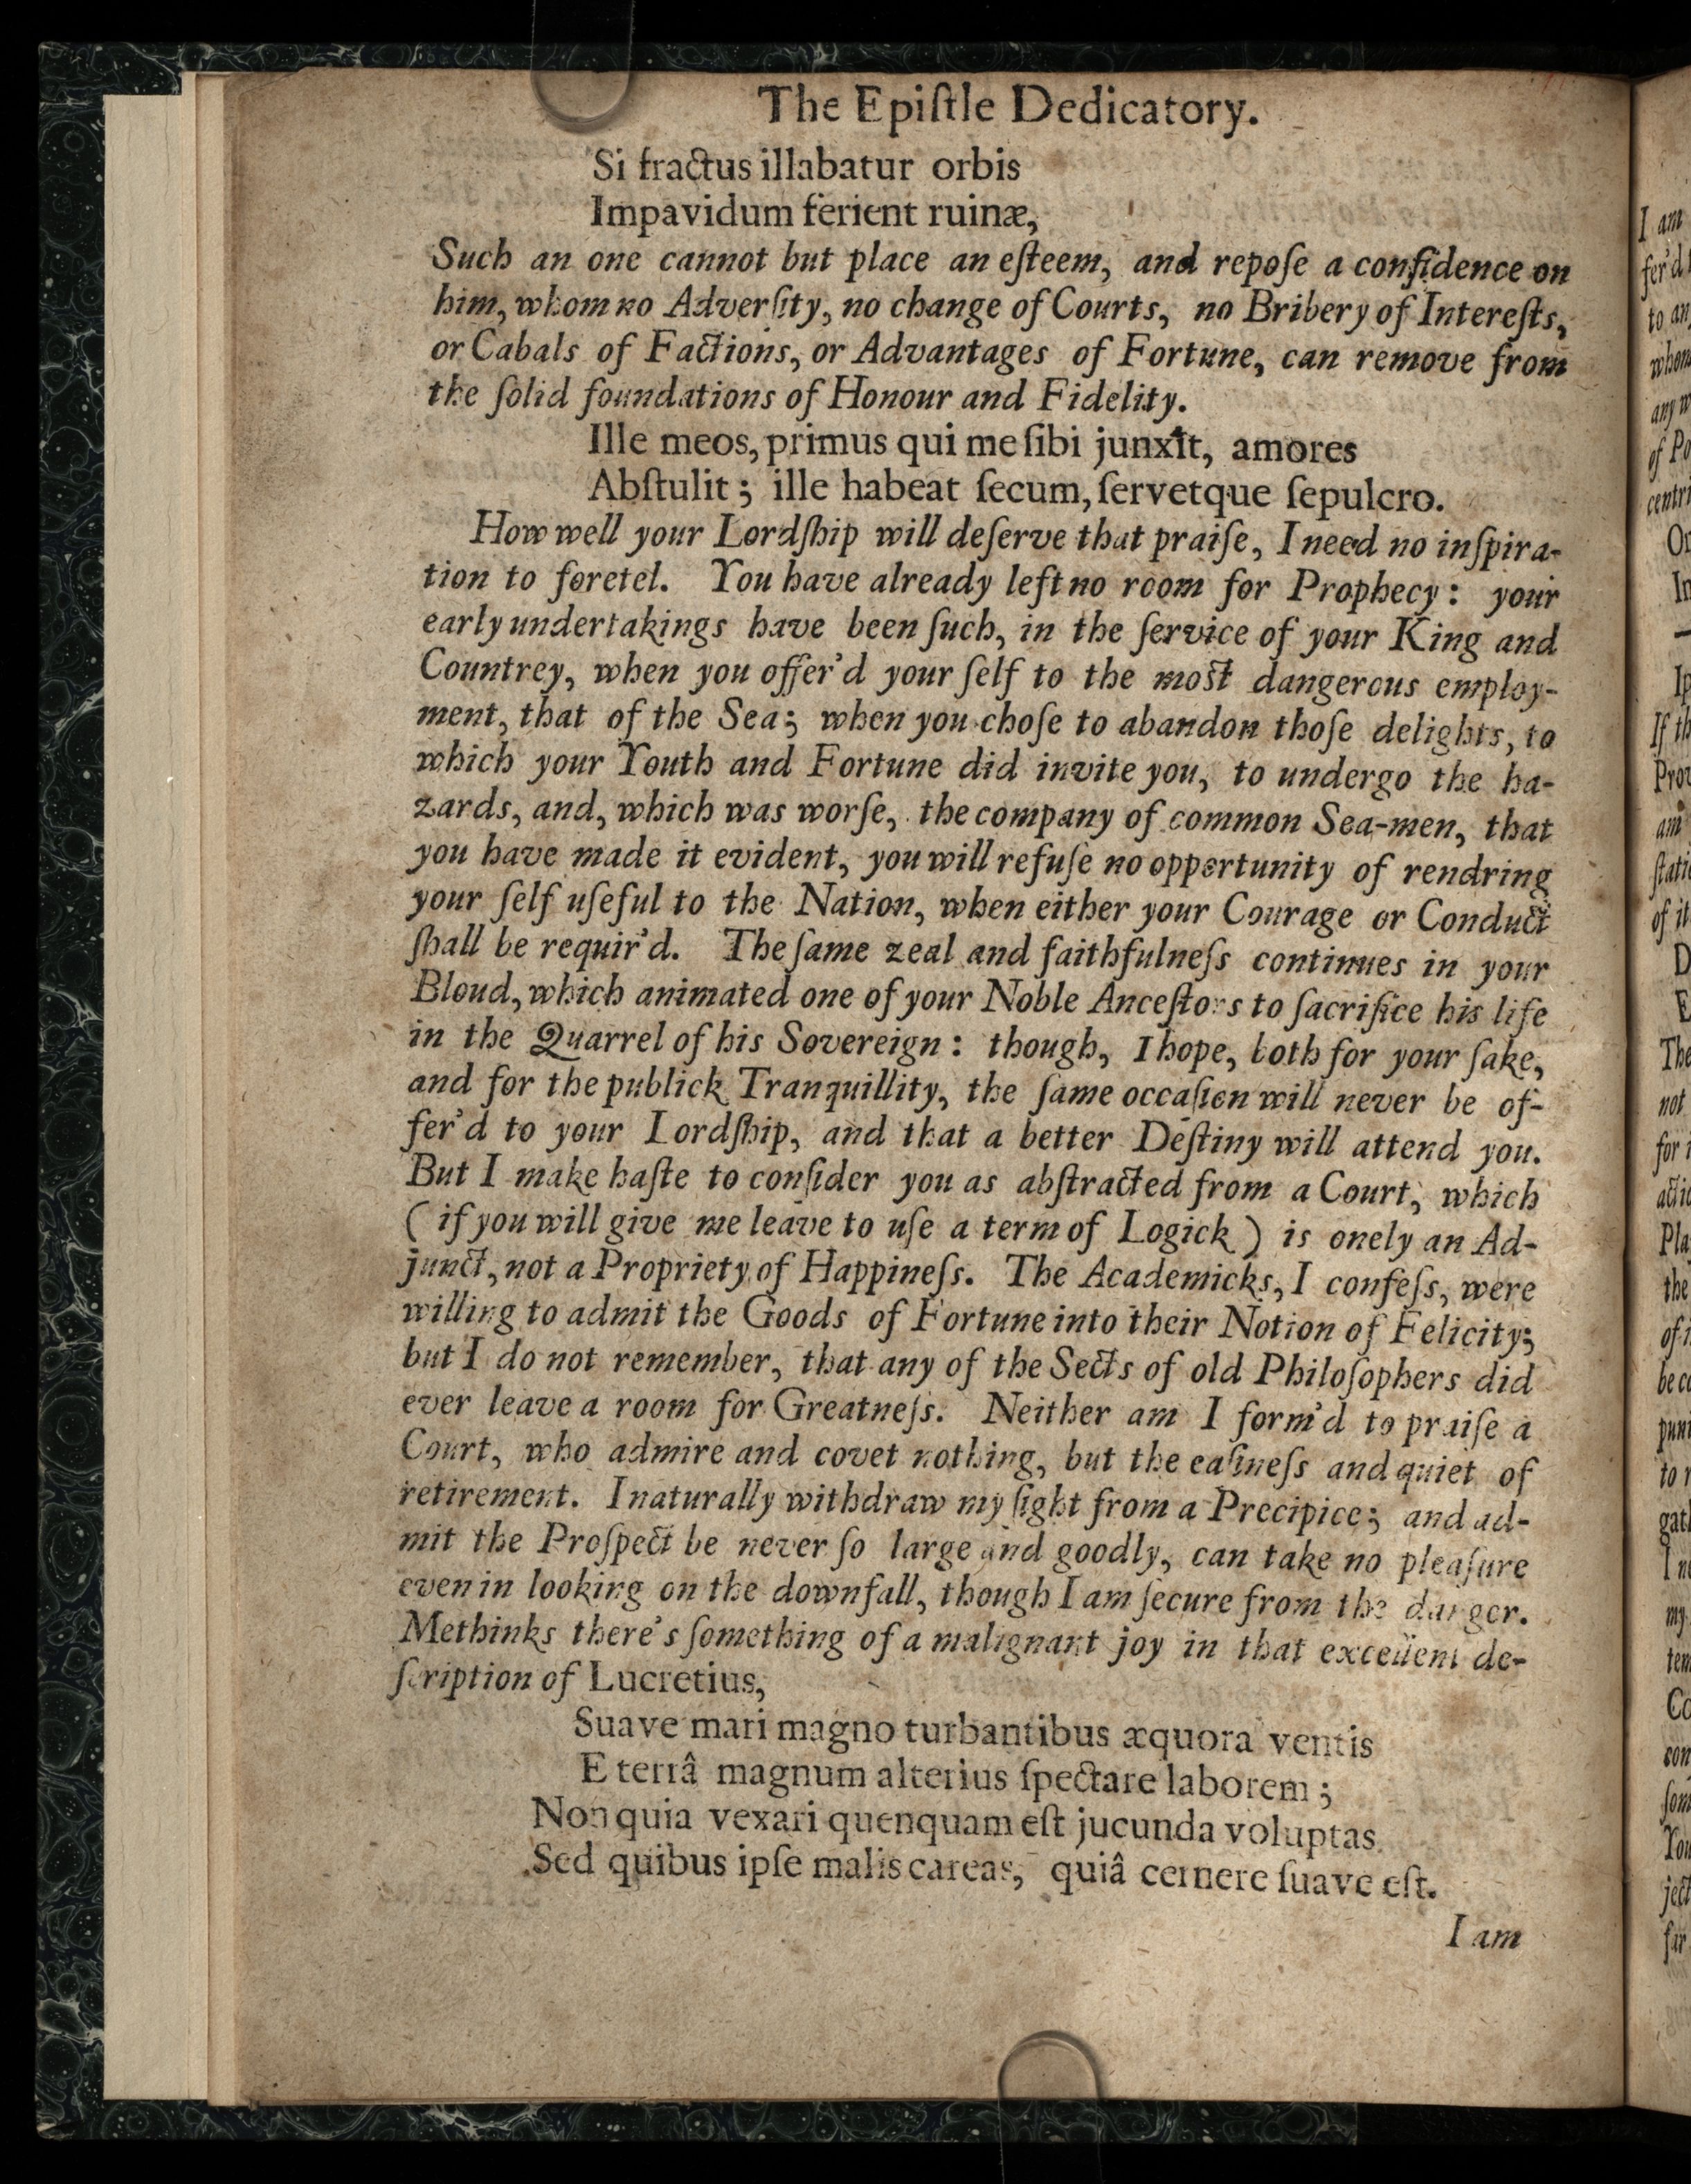 The Epiſtle Dedicatory.
Si fractus illabatur orbis
Impavidum ferient ruinæ,
Such an one cannot but place an eſteem, and repoſe a confidence on
him, whom no Adverſity, no change of Courts, no Bribery of Intereſts,
or Cabals of Factions, or Advantages of Fortune, can remove from
the ſolid foundations of Honour and Fidelity.
Ille meos, primus qui me ſibi junxit, amores
Abſtulit; ille habeat ſecum, ſervetque ſepulcro.
How well your Lordſhip will deſerve that praiſe, I need no inſpira-
tion to foretel. You have already left no room for Prophecy: your
early undertakings have been ſuch, in the ſervice of your King and
Countrey, when you offer'd your ſelf to the moſt dangerous employ-
ment, that of the Sea; when you choſe to abandon thoſe delights, to
which your Youth and Fortune did invite you, to undergo the ha-
zards, and, which was worſe, the company of common Sea-men, that
you have made it evident, you will refuſe no opportunity of rendring
your ſelf uſeful to the Nation, when either your Courage or Conduct
ſhall be requir'd. The ſame zeal and faithfulneſs continues in your
Bloud, which animated one of your Noble Anceſtors to ſacrifice his life
in the Quarrel of his Sovereign: though, I hope, both for your ſake,
and for the publick Tranquillity, the ſame occaſion will never be of-
fer'd to your Lordſhip, and that a better Deſtiny will attend you.
But I make haſte to conſider you as abſtracted from a Court, which
(if you will give me leave to uſe a term of Logick) is onely an Ad-
junct, not a Propriety of Happineſs. The Academicks, I confeſs, were
willing to admit the Goods of Fortune into their Notion of Felicity;
but I do not remember, that any of the Sects of old Philoſophers did
ever leave a room for Greatneſs. Neither am I form'd to praiſe a
Court, who admire and covet nothing, but the eaſineſs and quiet of
retirement. I naturally withdraw my ſight from a Precipice; and ad-
mit the Proſpect be never ſo large and goodly, can take no pleaſure
even in looking on the downfall, though I am ſecure from the danger.
Methinks there's ſomething of a malignant joy in that excellent de-
ſcription of Lucretius,
Suave mari magno turbantibus æquora ventis
E terrâ magnum alterius ſpectare laborem;
Non quia vexari quenquam eſt jucunda voluptas
Sed quibus ipſe malis careas, quiâ cernere ſuave eſt.
I am